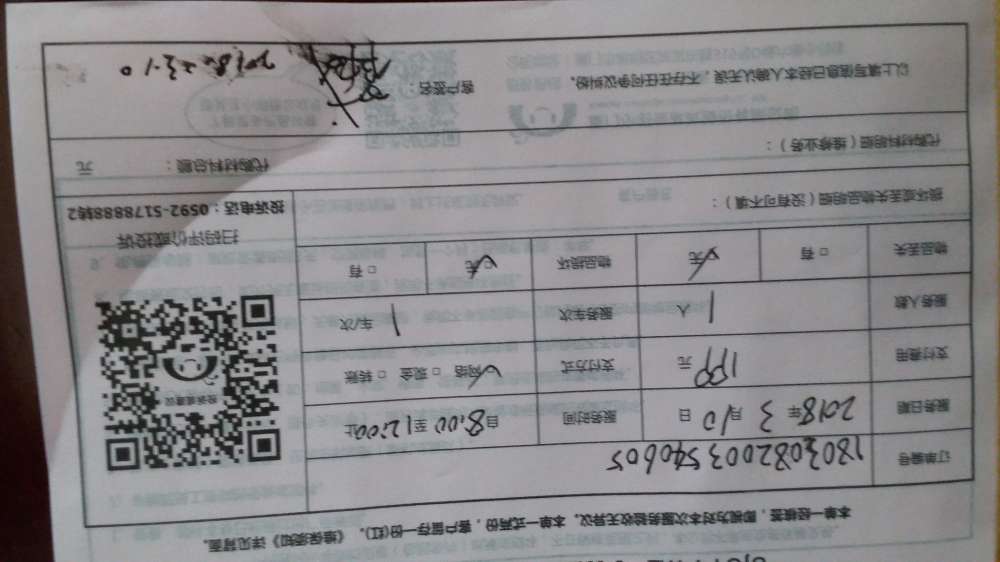 本单一经续签，即视为对本次服务验收无异议。本单一式两份，客户留存一份(红)。《维保须知》详见背面。
订单编号 180308200354060S
服务日期 2018年3月10日 服务时间 自8:00至12:00止
支付费用 199元 支付方式 网络 □现金 □转账
服务人数 1人 服务车次 1车/次
物品丢失 □有 无 物品损坏 无 □有
投诉或建议
扫码评价或投诉
投诉电话：0592-5178888转2
损坏或丢失物品明细（没有可不填）：
代购材料明细（维修业务）： 代购材料总额： 元
以上填写信息已经本人确认无误，不存在任何争议纠纷。 客户签名： 2018.3.10